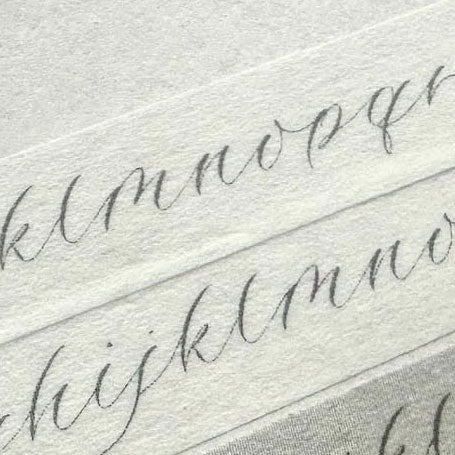 klmnopqr
hijklmno
kl